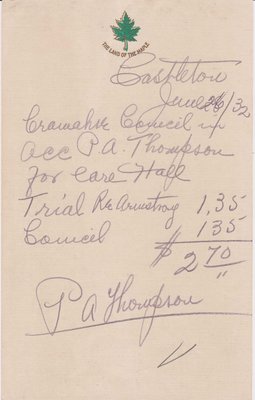 THE LAND OF THE MAPLE
Castleton
June 26/32
Cramahe Council in
acc P.A. Thompson
for care Hall
Trial Re Armstrong 1,35
Council 135
$ 2 70
"
P A Thompson